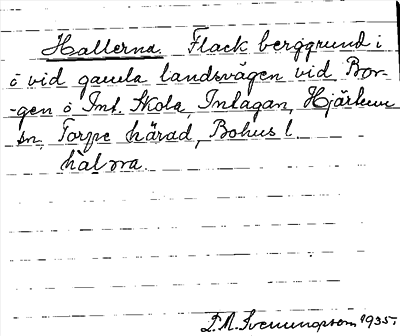 Hallerna. Flack berggrund i
ö vid gamla landsvägen vid Bor-
-gen ö Inl. Skola, Inlagan, Hjärtum
sn, Torpe härad, Bohus l.
hàl
P.M. Svenungsson 1935.